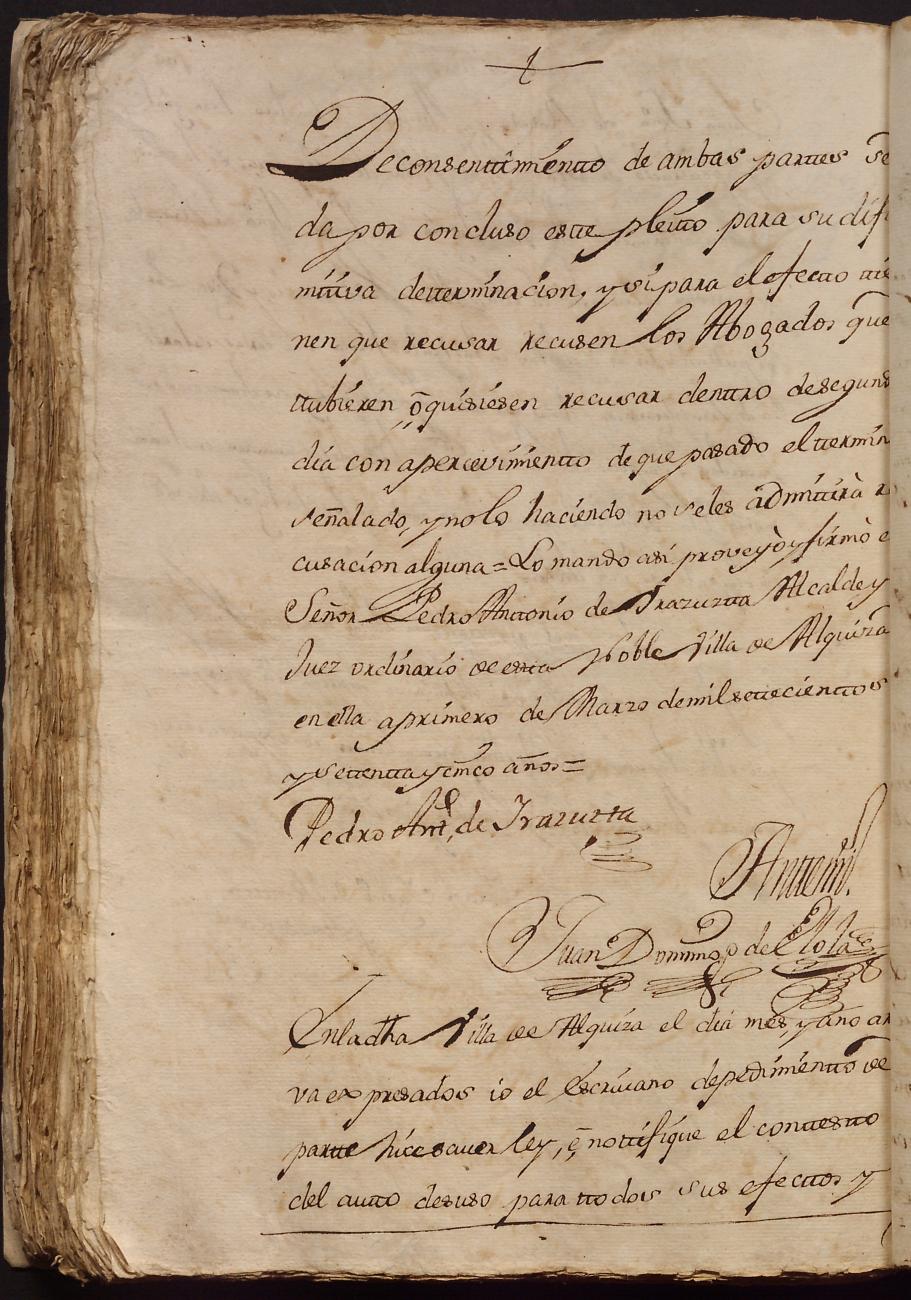 De consenttimientto de ambas parttes se
da por concluso estte pleitto para su difi
nittiva detterminacion, y si para el efectto ttie
nen que recusar recusen los Abogados que
ttubieren, ô quisiesen recusar denttro de segund
dia con apercevimientto de que pasado el ttermin
señalado, y no lo haciendo no se les admittirà re
cusacion alguna = Lo mando asi proveyò y firmò e
Señor Pedro Anttonio de Irazuztta Alcalde y
Juez ordinario de estta Noble Villa de Alquiza
en ella a primero de Marzo de mil settecienttos
y settentta y cinco años =
Pedro Antt.º de Irazuzta
Antte mi.
Juan Domingo de Elola
En la dha Villa de Alquiza el dia mes, y año ar
va expresados io el Escrivano de pedimientto de
partte hice saver ley, è nottifique el conttestto
del autto de suso para ttodos sus efecttos y